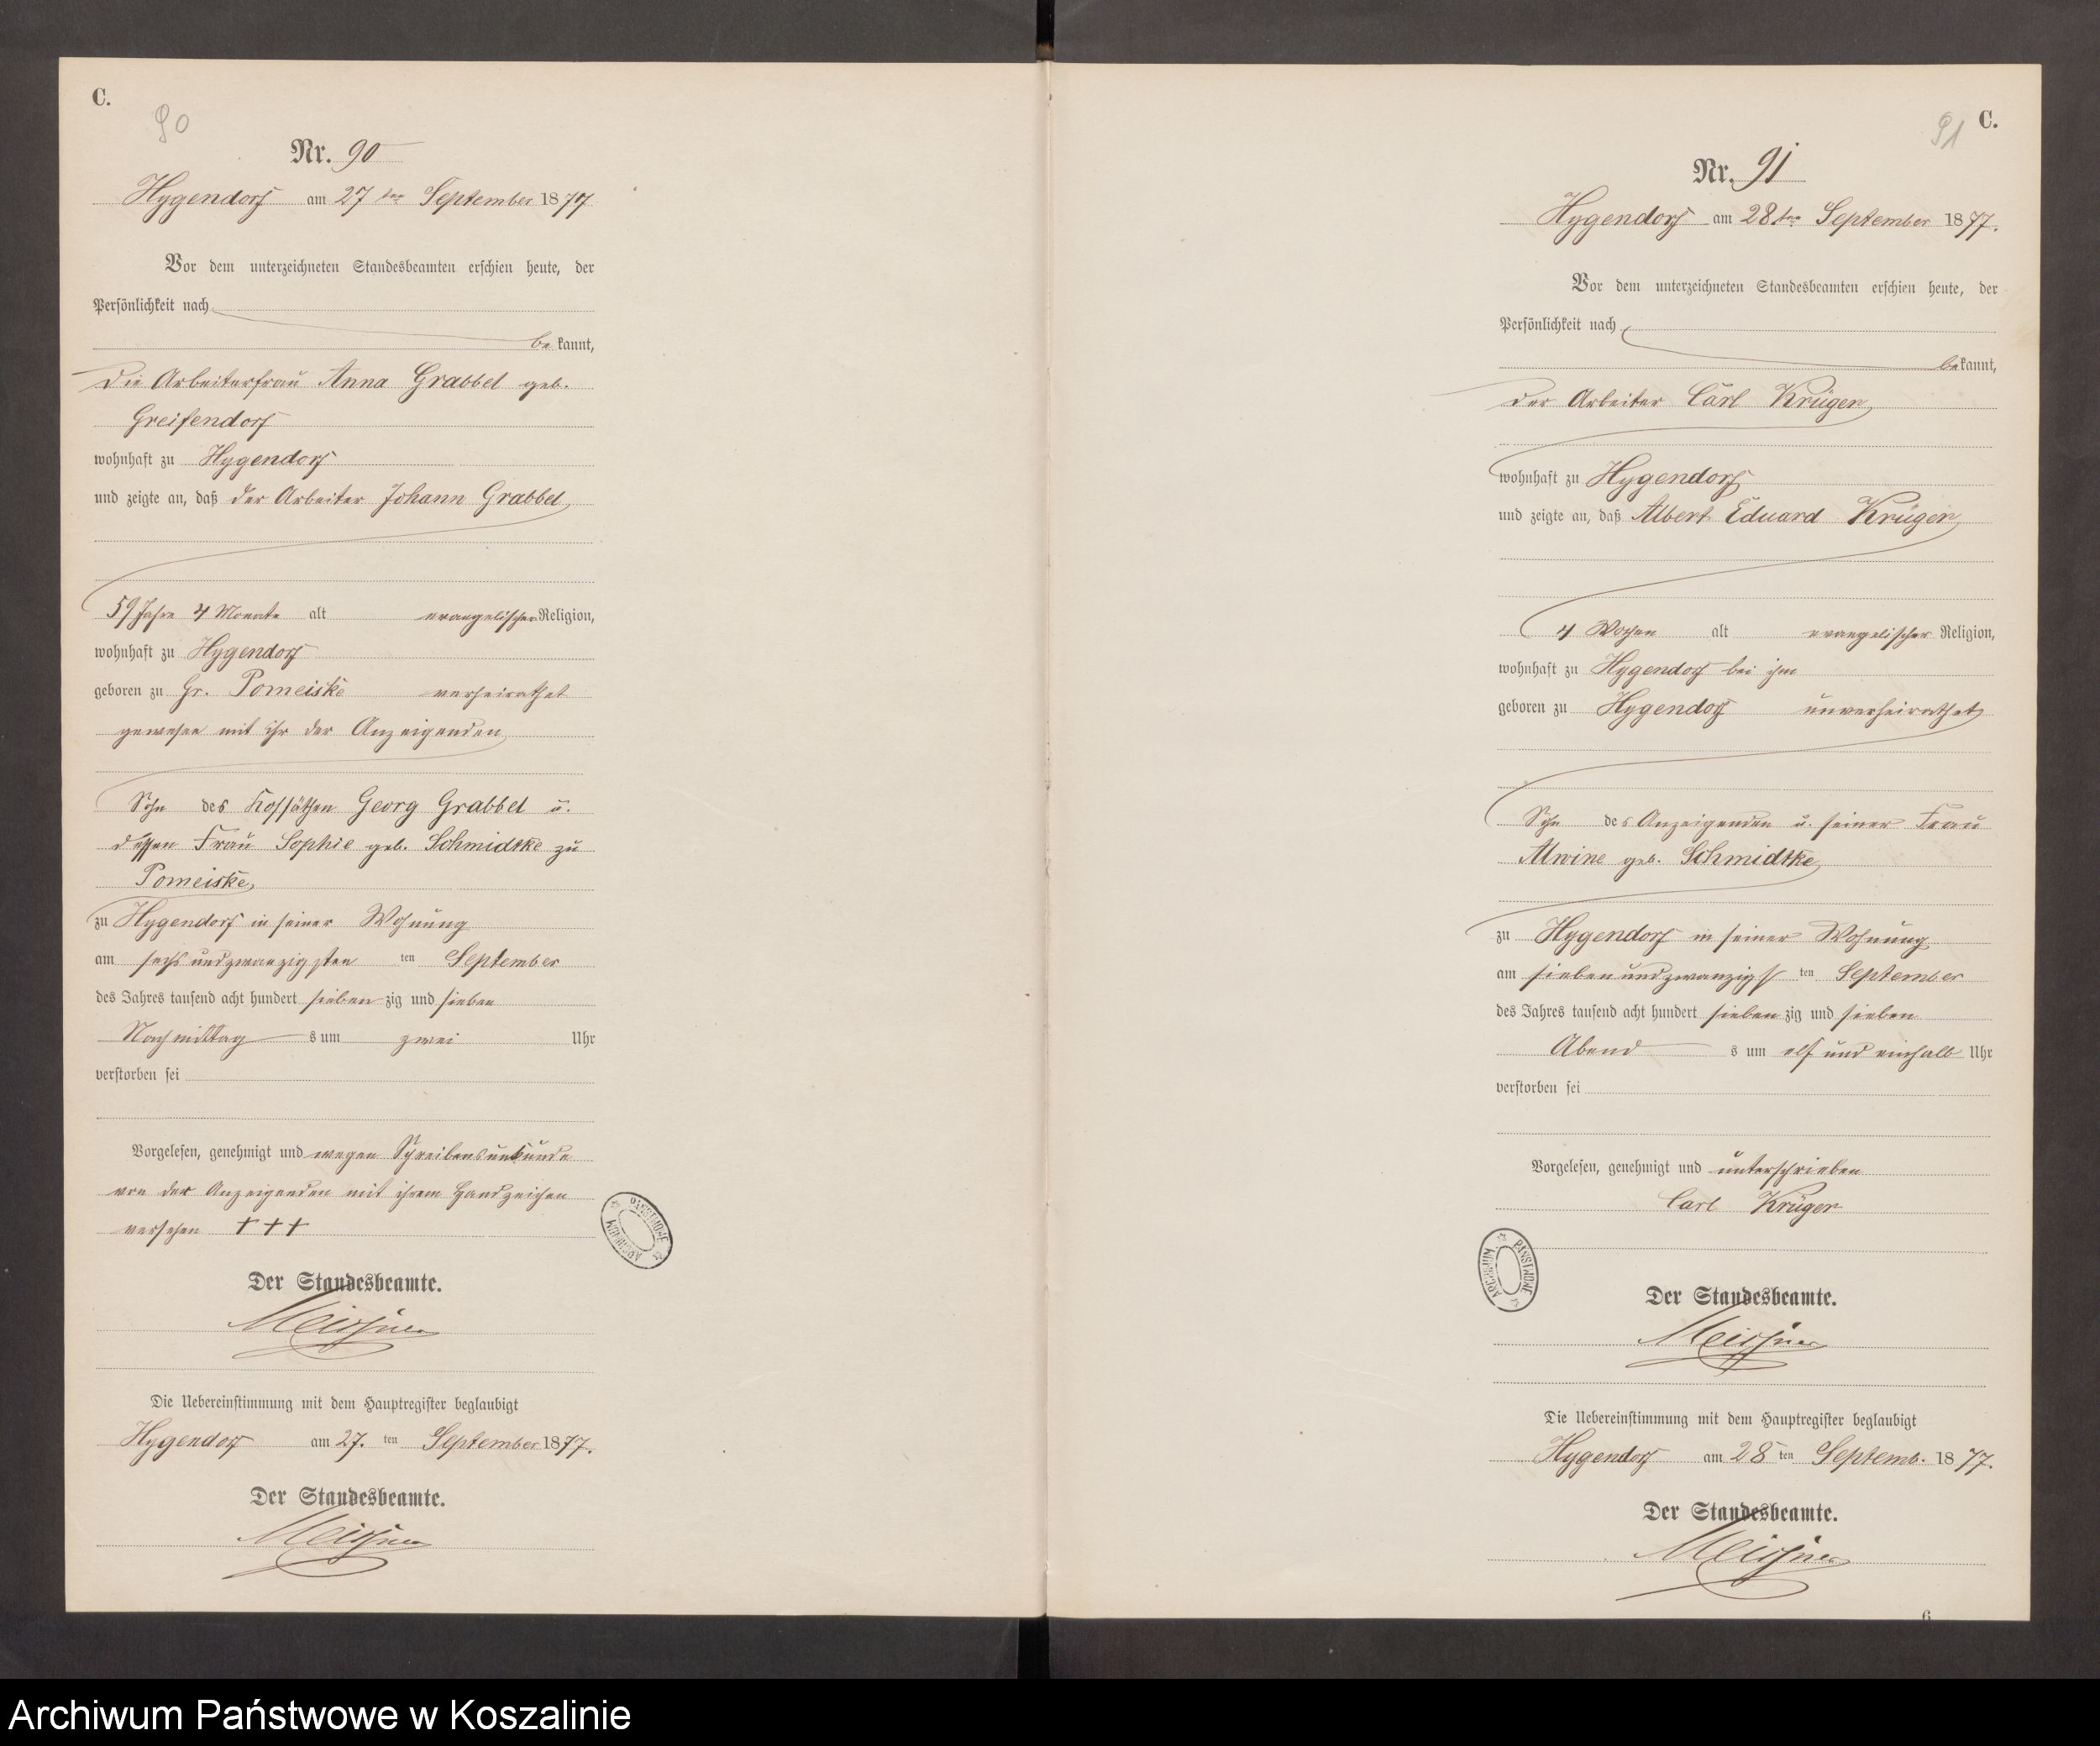 C.
90
Nr. 90
Hygendorf am 27ten September 1877
Vor dem unterzeichneten Standesbeamten erschien heute, der
Persönlichkeit nach
bekannt,
die Arbeiterfrau Anna Grabbel geb.
Greifendorf
wohnhaft zu Hygendorf
und zeigte an, daß der Arbeiter Johann Grabbel
59 Jahre 4 Monate alt evangelischer Religion,
wohnhaft zu Hygendorf
geboren zu Gr. Pomeiske verheirathet
gewesen mit ihr der Anzeigenden
Sohn des Kossäthen Georg Grabbel u.
dessen Frau Sophie geb. Schmidtke zu
Pomeiske
zu Hygendorf in seiner Wohnung
am sechsundzwanzigsten ten September
des Jahres tausend acht hundert siebenzig und sieben
Nachmittags um zwei Uhr
verstorben sei
Vorgelesen, genehmigt und wegen Schreibensunkunde
von der Anzeigenden mit ihrem Handzeichen
versehen +++
Der Standesbeamte.
Meissner
Die Uebereinstimmung mit dem Hauptregister beglaubigt
Hygendorf am 27. ten September 1877.
Der Standesbeamte.
Meissner
ARCHIWUM PAŃSTWOWE
C.
91
Nr. 91
Hygendorf am 28ten September 1877.
Vor dem unterzeichneten Standesbeamten erschien heute, der
Persönlichkeit nach
bekannt,
der Arbeiter Carl Krüger
wohnhaft zu Hygendorf
und zeigte an, daß Albert Eduard Krüger
4 Wochen alt evangelischer Religion,
wohnhaft zu Hygendorf bei ihm
geboren zu Hygendorf unverheirathet
Sohn des Anzeigenden u. seiner Frau
Alwine geb. Schmidtke
zu Hygendorf in seiner Wohnung
am siebenundzwanzigs ten September
des Jahres tausend acht hundert siebenzig und sieben
Abends um elf und einhalb Uhr
verstorben sei
Vorgelesen, genehmigt und unterschrieben
Carl Krüger
Der Standesbeamte.
Meissner
Die Uebereinstimmung mit dem Hauptregister beglaubigt
Hygendorf am 28 ten Septemb. 1877.
Der Standesbeamte.
Meissner
ARCHIWUM PAŃSTWOWE
6
Archiwum Państwowe w Koszalinie